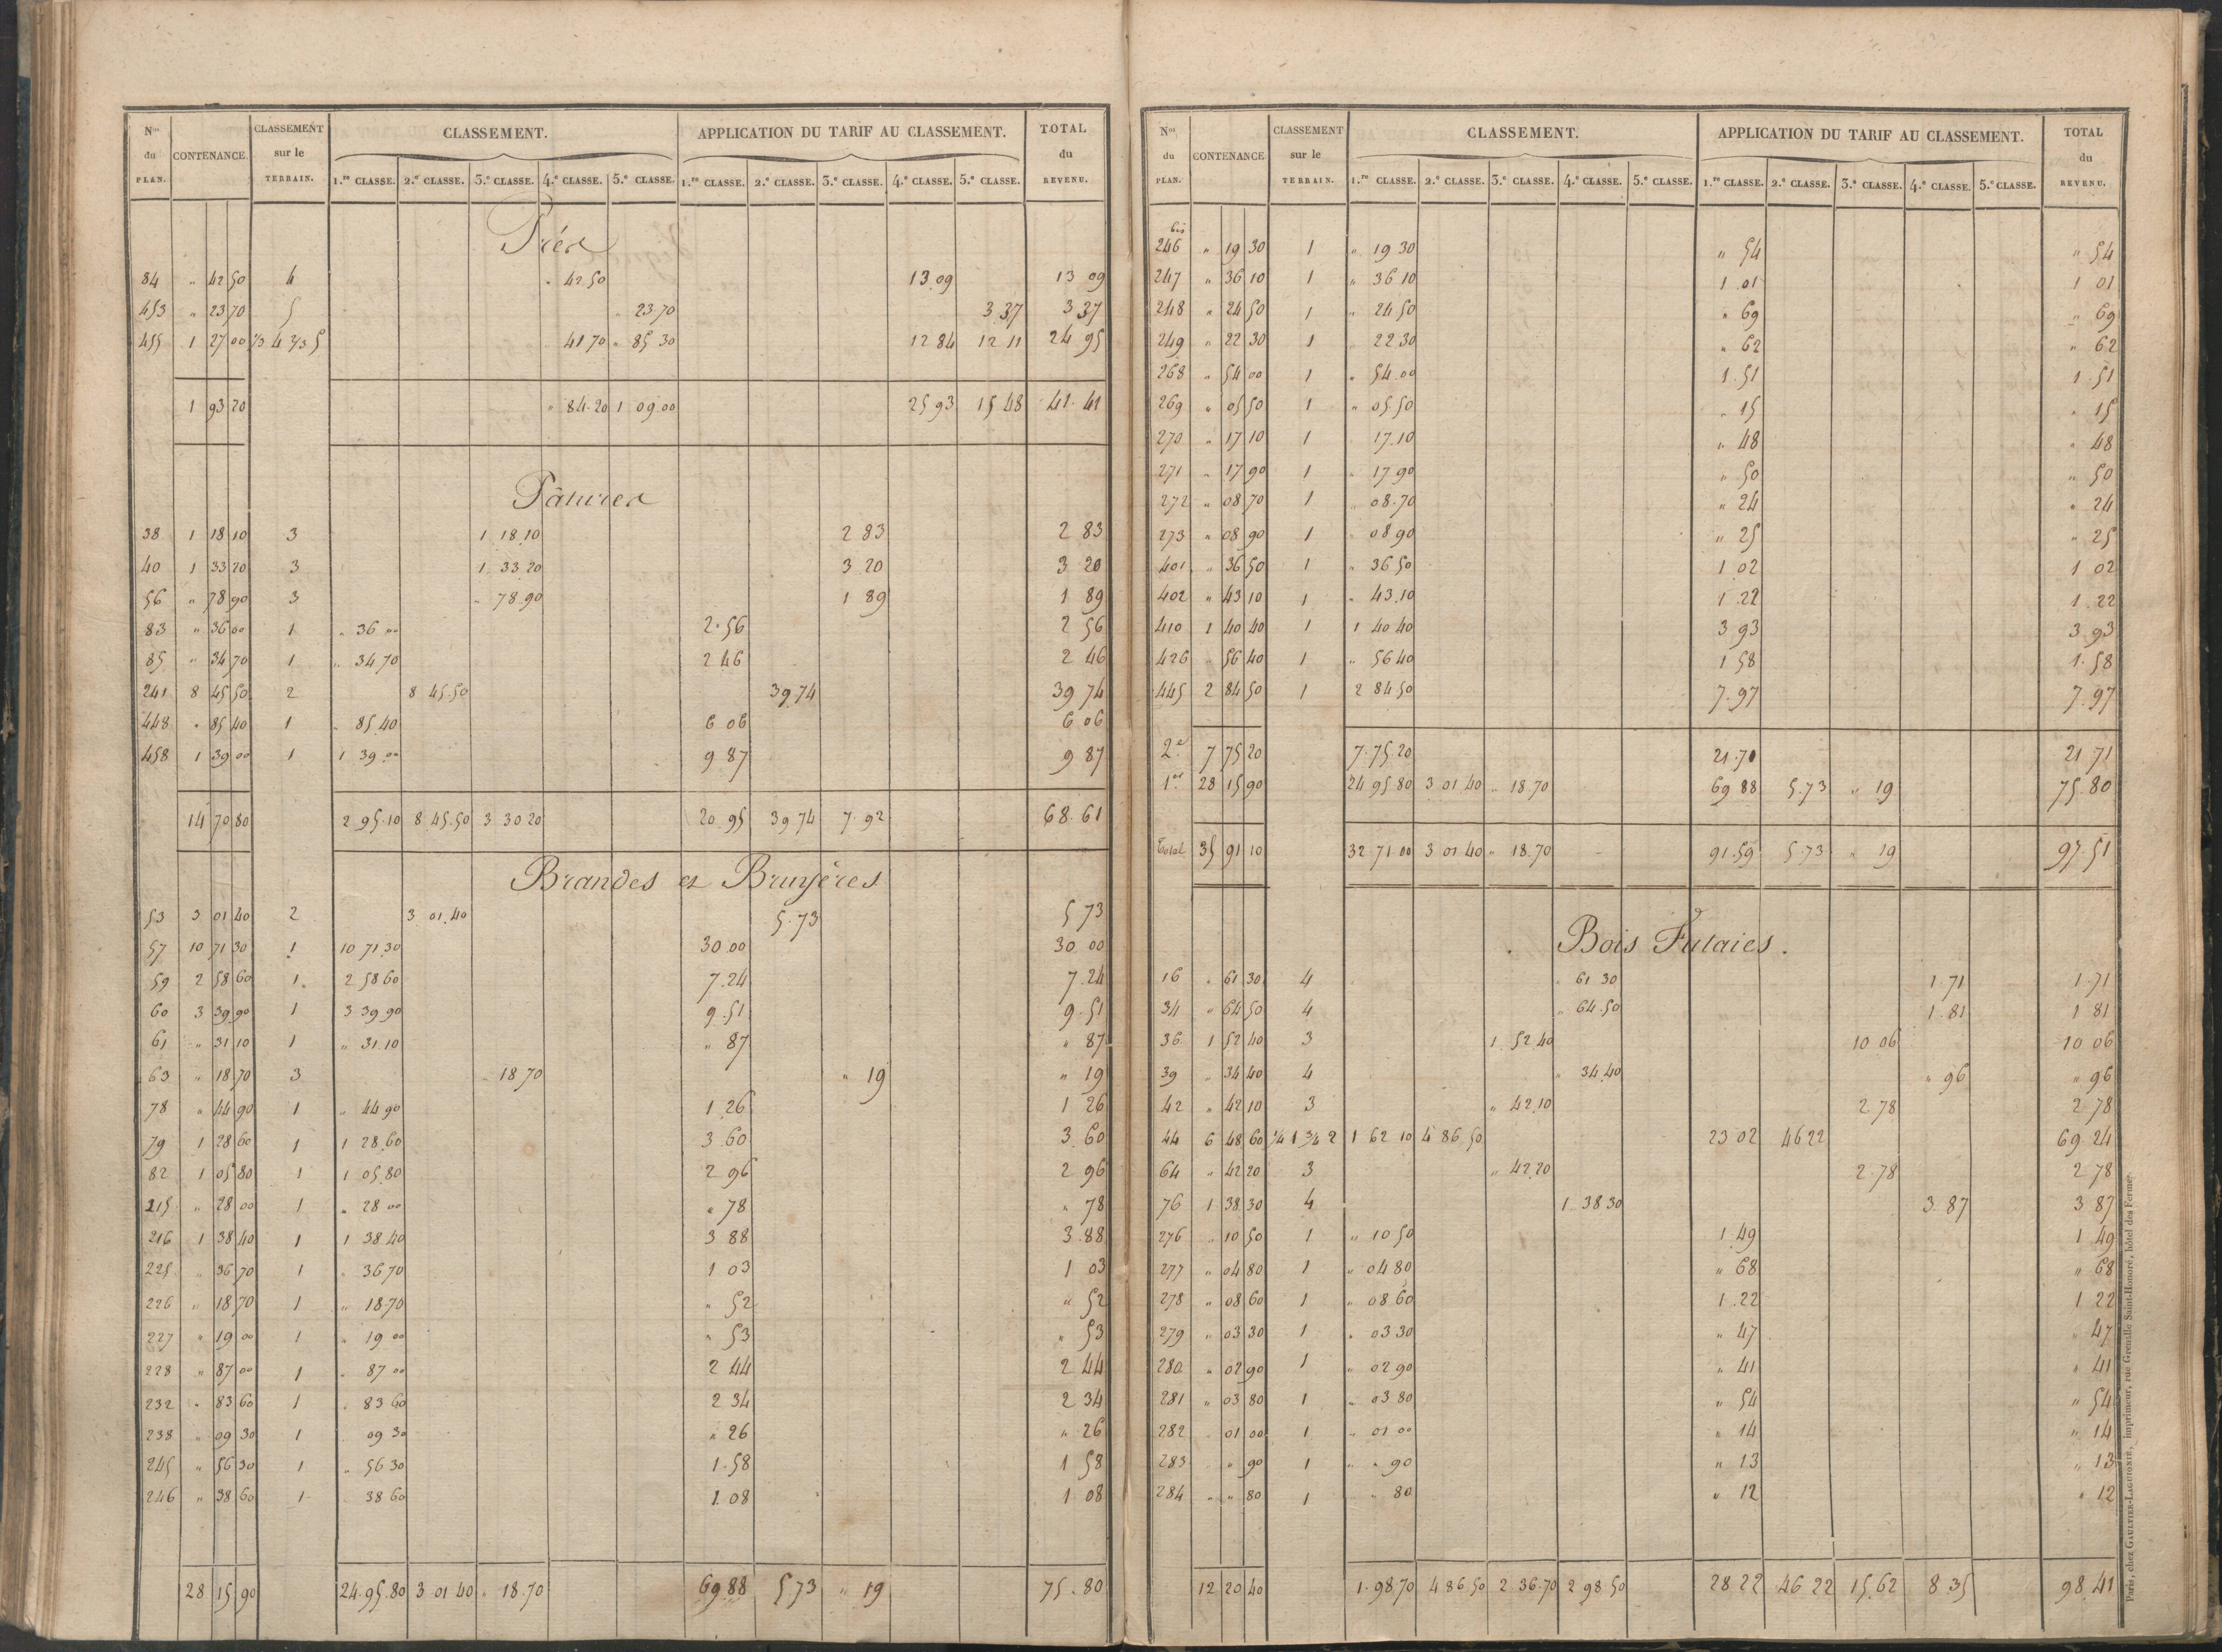 Nos du PLAN. | CONTENANCE. | CLASSEMENT sur le TERRAIN. | CLASSEMENT. | APPLICATION DU TARIF AU CLASSEMENT. | TOTAL du REVENU.
1.re CLASSE. | 2.e CLASSE. | 3.e CLASSE. | 4.e CLASSE. | 5.e CLASSE. | 1.re CLASSE. | 2.e CLASSE. | 3.e CLASSE. | 4.e CLASSE. | 5.e CLASSE.
Prés
84 " 42 50 4 " 42.50 13.09 13 09
453 " 23 70 5 " 23.70 3.37 3 37
455 1 27 00 1/3 4 2/3 5 " 41 70 " 85 30 12 84 12 11 24 95
1 93 20 " 84.20 1 09.00 25 93 15 48 41.41
Pâtures
38 1 18 10 3 1 18.10 2 83 2 83
40 1 33 20 3 1 33 20 3 20 3 20
56 " 78 90 3 " 78.90 1 89 1 89
83 " 36 00 1 " 36 00 2.56 2 56
85 " 34 70 1 " 34 70 2 46 2 46
241 8 45 50 2 8 45.50 39.74 39 74
448 " 85 40 1 " 85.40 6 06 6 06
458 1 39 00 1 1 39 00 9 87 9 87
14 70 80 2 95.10 8 45.50 3 30 20 20.95 39 74 7.92 68.61
Brandes et Bruyères
53 3 01 40 2 3 01.40 5.73 5 73
57 10 71 30 1 10 71.30 30 00 30 00
59 2 58 60 1 2 58 60 7.24 7.24
60 3 39 90 1 3 39 90 9.51 9.51
61 " 31 10 1 " 31.10 " 87 " 87
63 " 18 70 3 " 18.70 " 19 " 19
78 " 44 90 1 " 44 90 1.26 1 26
79 1 28 60 1 1 28.60 3 60 3 60
82 1 05 80 1 1 05.80 2 96 2 96
215 " 28 00 1 " 28 00 " 78 " 78
216 1 38 40 1 1 38 40 3 88 3.88
225 " 36 70 1 " 36 70 1 03 1 03
226 " 18 70 1 " 18.70 " 52 " 52
227 " 19 00 1 " 19 00 " 53 " 53
228 " 87 00 1 " 87 00 2 44 2 44
232 " 83 60 1 " 83 60 2 34 2 34
238 " 09 30 1 09 30 " 26 " 26
245 " 56 30 1 " 56 30 1.58 1 58
246 " 38 60 1 38 60 1.08 1 08
28 15 90 24.95.80 3 01 40 " 18.70 69.88 5 73 " 19 75.80
Nos du PLAN. | CONTENANCE | CLASSEMENT sur le TERRAIN. | CLASSEMENT. | APPLICATION DU TARIF AU CLASSEMENT. | TOTAL du REVENU.
1.re CLASSE. | 2.e CLASSE. | 3.e CLASSE. | 4.e CLASSE. | 5.e CLASSE. | 1.re CLASSE. | 2.e CLASSE. | 3.e CLASSE. | 4.e CLASSE. | 5.e CLASSE.
246 bis " 19 30 1 " 19 30 " 54 " 54
247 " 36 10 1 " 36 10 1.01 1 01
248 " 24 50 1 " 24 50 " 69 " 69
249 " 22 30 1 " 22 30 " 62 " 62
268 " 54 00 1 " 54.00 1.51 1.51
269 " 05 50 1 " 05.50 " 15 " 15
270 " 17 10 1 17.10 " 48 " 48
271 " 17 90 1 " 17.90 " 50 " 50
272 " 08 70 1 " 08.70 " 24 " 24
273 " 08 90 1 " 08 90 " 25 " 25
401 " 36 50 1 " 36 50 1 02 1 02
402 " 43 10 1 " 43.10 1.22 1.22
410 1 40 40 1 1 40 40 3 93 3 93
426 " 56 40 1 " 56 40 1 58 1.58
445 2 84 50 1 2 84 50 7.97 7.97
2e. 7 75 20 7.75.20 21.71 21 71
1er 28 15 90 24 95 80 3 01 40 " 18.70 69 88 5.73 " 19 75.80
Total 35 91 10 32 71.00 3 01 40 " 18.70 91.59 5.73 " 19 97.51
Bois Futaies.
16 " 61 30 4 " 61 30 1.71 1.71
34 " 64 50 4 " 64.50 1.81 1 81
36 1 52 40 3 1 52 40 10 06 10 06
39 " 34 40 4 " 34.40 " 96 " 96
42 " 42 10 3 " 42.10 2 78 2 78
44 6 48 60 1/4 1 3/4 2 1 62 10 4 86 50 23 02 46 22 69.24
64 " 42 20 3 " 42.20 2.78 2 78
76 1 38 30 4 1 38 30 3 87 3 87
276 " 10 50 1 " 10 50 1.49 1 49
277 " 04 80 1 " 04 80 " 68 " 68
278 " 08 60 1 " 08.60 1.22 1 22
279 " 03 30 1 " 03 30 " 47 " 47
280 " 02 90 1 " 02 90 " 41 " 41
281 " 03 80 1 " 03 80 " 54 " 54
282 " 01 00 1 " 01 00 " 14 " 14
283 " " 90 1 " " 90 " 13 " 13
284 " " 80 1 " 80 " 12 " 12
12 20 40 1.98.70 4 86 50 2.36.70 2 98 50 28 22 46 22 15.62 8 35 98.41
Paris, chez GAULTIER-LAGUIONIE, imprimeur, rue Grenelle Saint-Honoré, hôtel des Fermes.